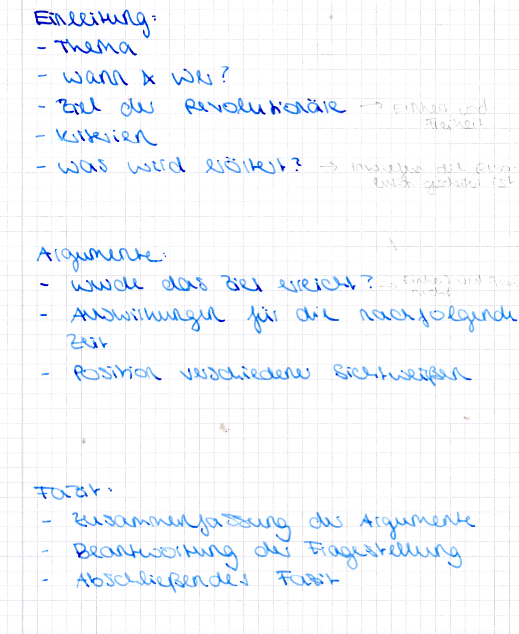 Einleitung:
- Thema
- wann & wer?
- Ziel der Revolutionäre → Einheit und
Freiheit
- Kriterien
- was wird erörtert? → inwiefern die
ist
Argumente:
- wurde das Ziel erreicht? → Einheit und
- Auswirkungen für die nachfolgende
Zeit
- Position verschiedener Sichtweißen
Fazit:
- Zusammenfassung der Argumente
- Beantwortung der Fragestellung
- Abschließendes Fazit